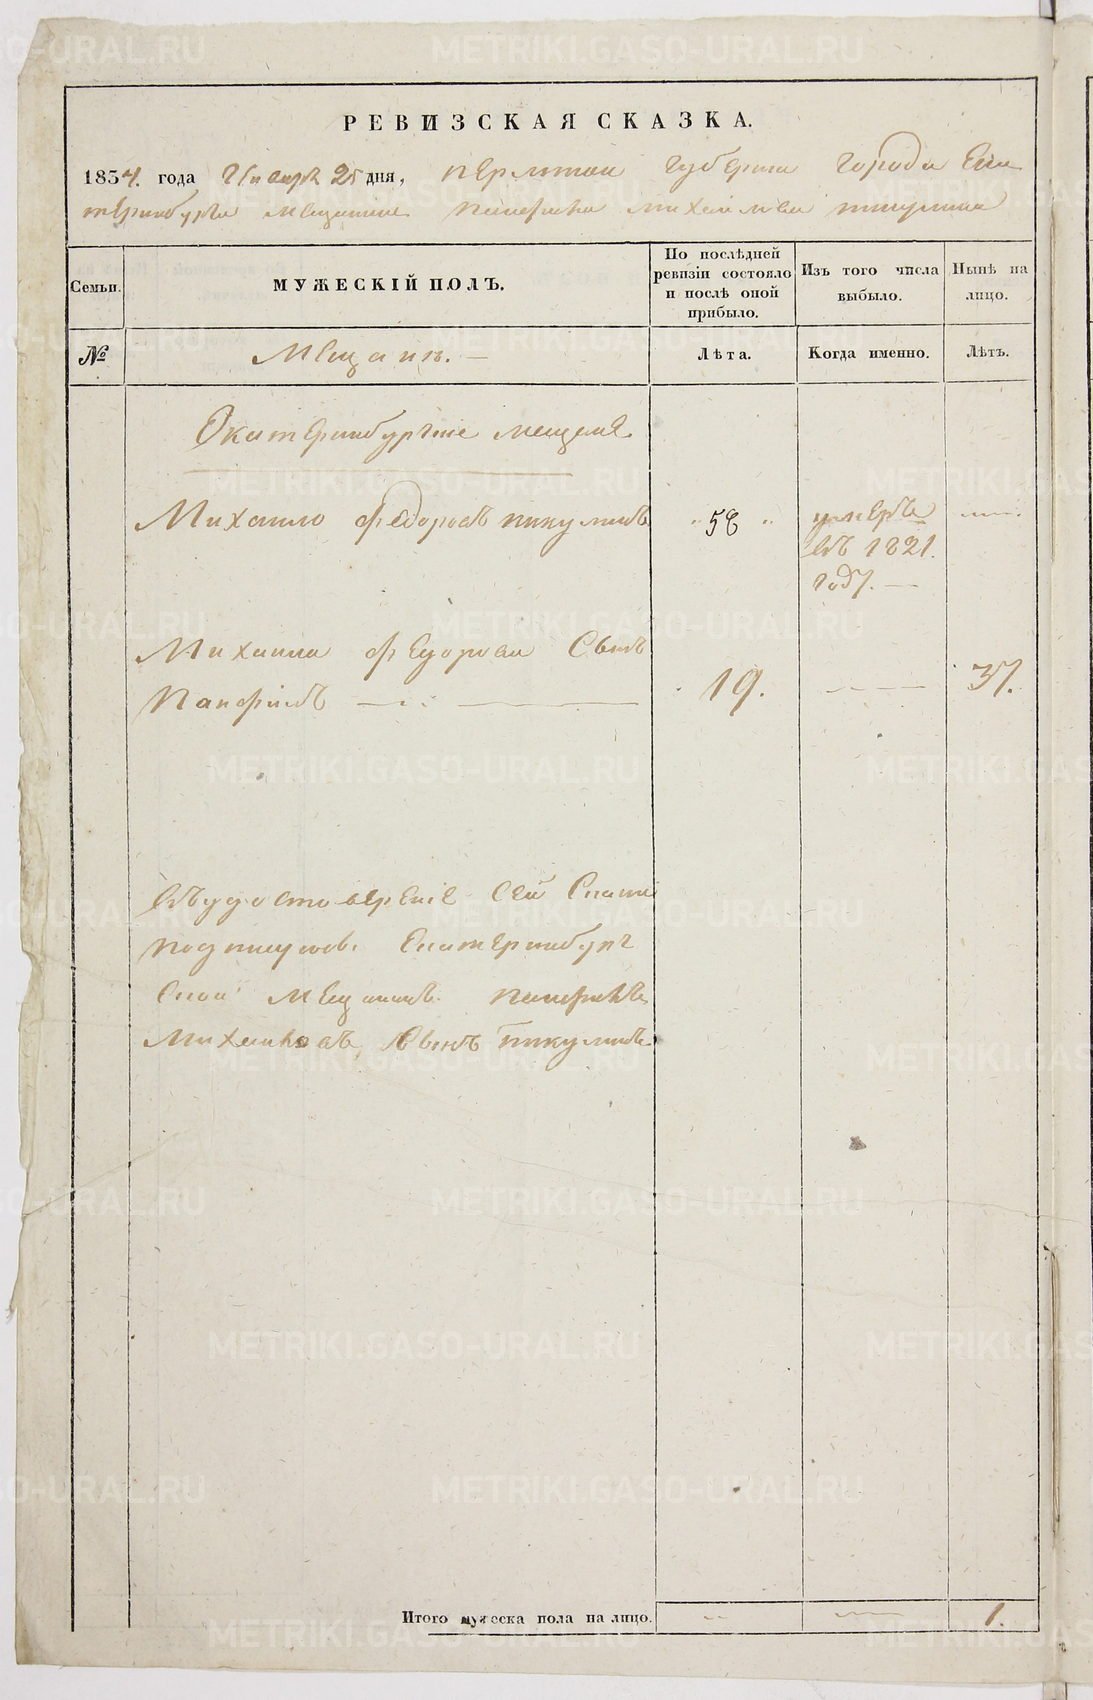 РЕВИЗСКАЯ СКАЗКА.
1834. года Генваря 25 дня, Пермской губернии города Ека
теринбурга мещанина Панфила Михайлова Пикулина
Семьи.
МУЖЕСКІЙ ПОЛЪ.
По послѣдней
ревизіи состояло
и послѣ оной
прибыло.
Изъ того числа
выбыло.
Нынѣ на
лицо.
№
Мещанъ. —
Лѣта.
Когда именно.
Лѣтъ.
Екатеринбургскіе мещане
Михайло Федоровъ Пикулинъ
58
умеръ
въ 1821.
году. —
Михайла Федорова Сынъ
Панфилъ
19.
37.
Въ удостовереніе Сей Сказки
подписуюсь Екатеринбург
Ской мещанинъ Панфилъ
Михайловъ Сынъ Пикулинъ.
Итого мужеска пола на лицо.
1.
METRIKI.GASO-URAL.RU